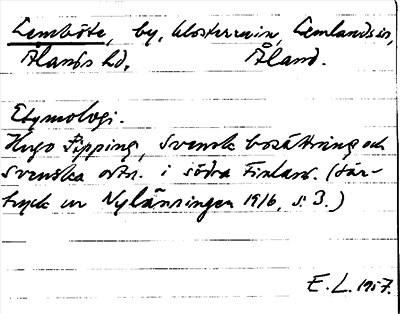 Lemböte, by, klosterruin, Lemlands sn,
Ålands hd, Åland.
Etymologi.
Hugo Pipping, Svensk bosättning och
svenska ortn. i södra Finland. (Sär-
tryck ur Nylänningen 1916, s. 3.)
E. L. 1957.